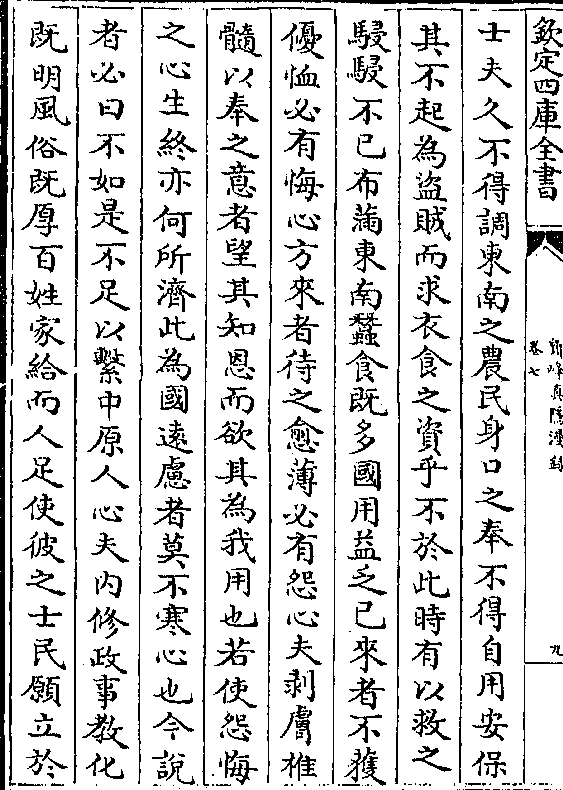 欽定四庫全書
鄮峰真隱漫録
卷七
九
士夫久不得調東南之農民身口之奉不得自用安保
其不起為盜賊而求衣食之資乎不於此時有以救之
駸駸不已布滿東南蠶食既多國用益乏已來者不獲
優恤必有悔心方來者待之愈薄必有怨心夫剥膚椎
髓以奉之意者望其知恩而欲其為我用也若使怨悔
之心生終亦何所濟此為國遠慮者莫不寒心也今說
者必曰不如是不足以繫中原人心夫内修政事教化
既明風俗既厚百姓家給而人足使彼之士民願立於